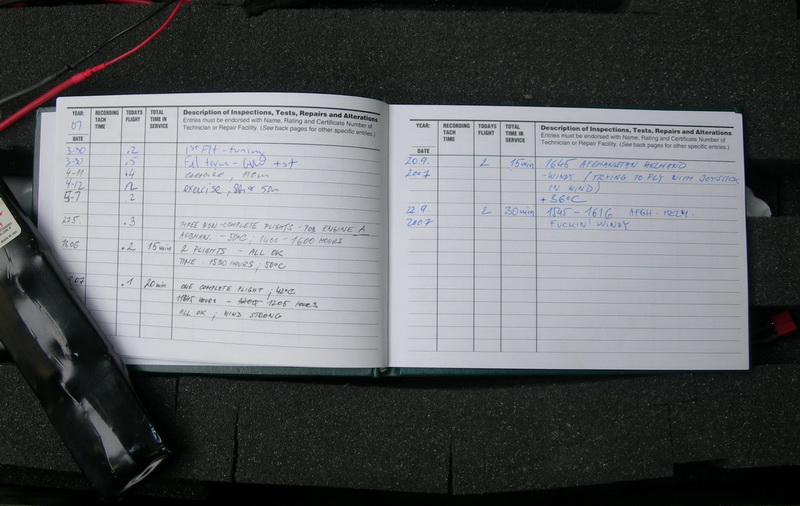 YEAR: RECORDING TACH TIME TODAYS FLIGHT TOTAL TIME IN SERVICE Description of Inspections, Tests, Repairs and Alterations
Entries must be endorsed with Name, Rating and Certificate Number of
Technician or Repair Facility. (See back pages for other specific entries.)
07
DATE
3-30 .2 1st Flt - tuning
3-30 .5
4-11 .4 exercise,
4-12 exercise,
5-7 2
.3 THREE NON-COMPLETE FLIGHTS - FOR ENGINE A
AFGHAN. - 50°C, 1400 - 1600 HOURS
.2 15min 2 FLIGHTS - ALL OK
TIME: 1530 HOURS; 50°C
.1 20min ONE COMPLETE FLIGHT; 42°C
1145 HOURS - 1205 HOURS
ALL OK; WIND STRONG
YEAR: RECORDING TACH TIME TODAYS FLIGHT TOTAL TIME IN SERVICE Description of Inspections, Tests, Repairs and Alterations
Entries must be endorsed with Name, Rating and Certificate Number of
Technician or Repair Facility. (See back pages for other specific entries.)
DATE
20.9. 2 15min 1645 AFGHANISTAN HELMAND
2007 - WINDY (TRYING TO FLY WITH JOYSTICK
IN WIND)
+36°C
22.9. 2 30min 1545 - 1616 AFGH.
2007 FUCKIN' WINDY